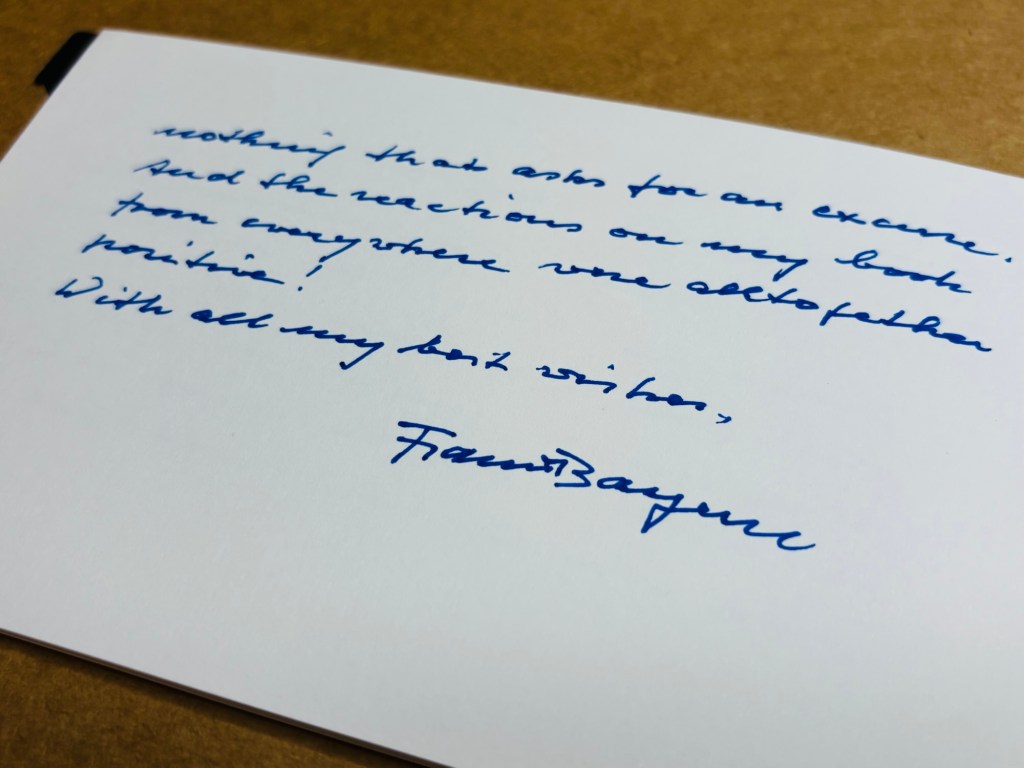 nothing that asks for an excuse.
And the reactions on my book
from everywhere were alltogether
positive!
With all my best wishes,
Franz Bayerl